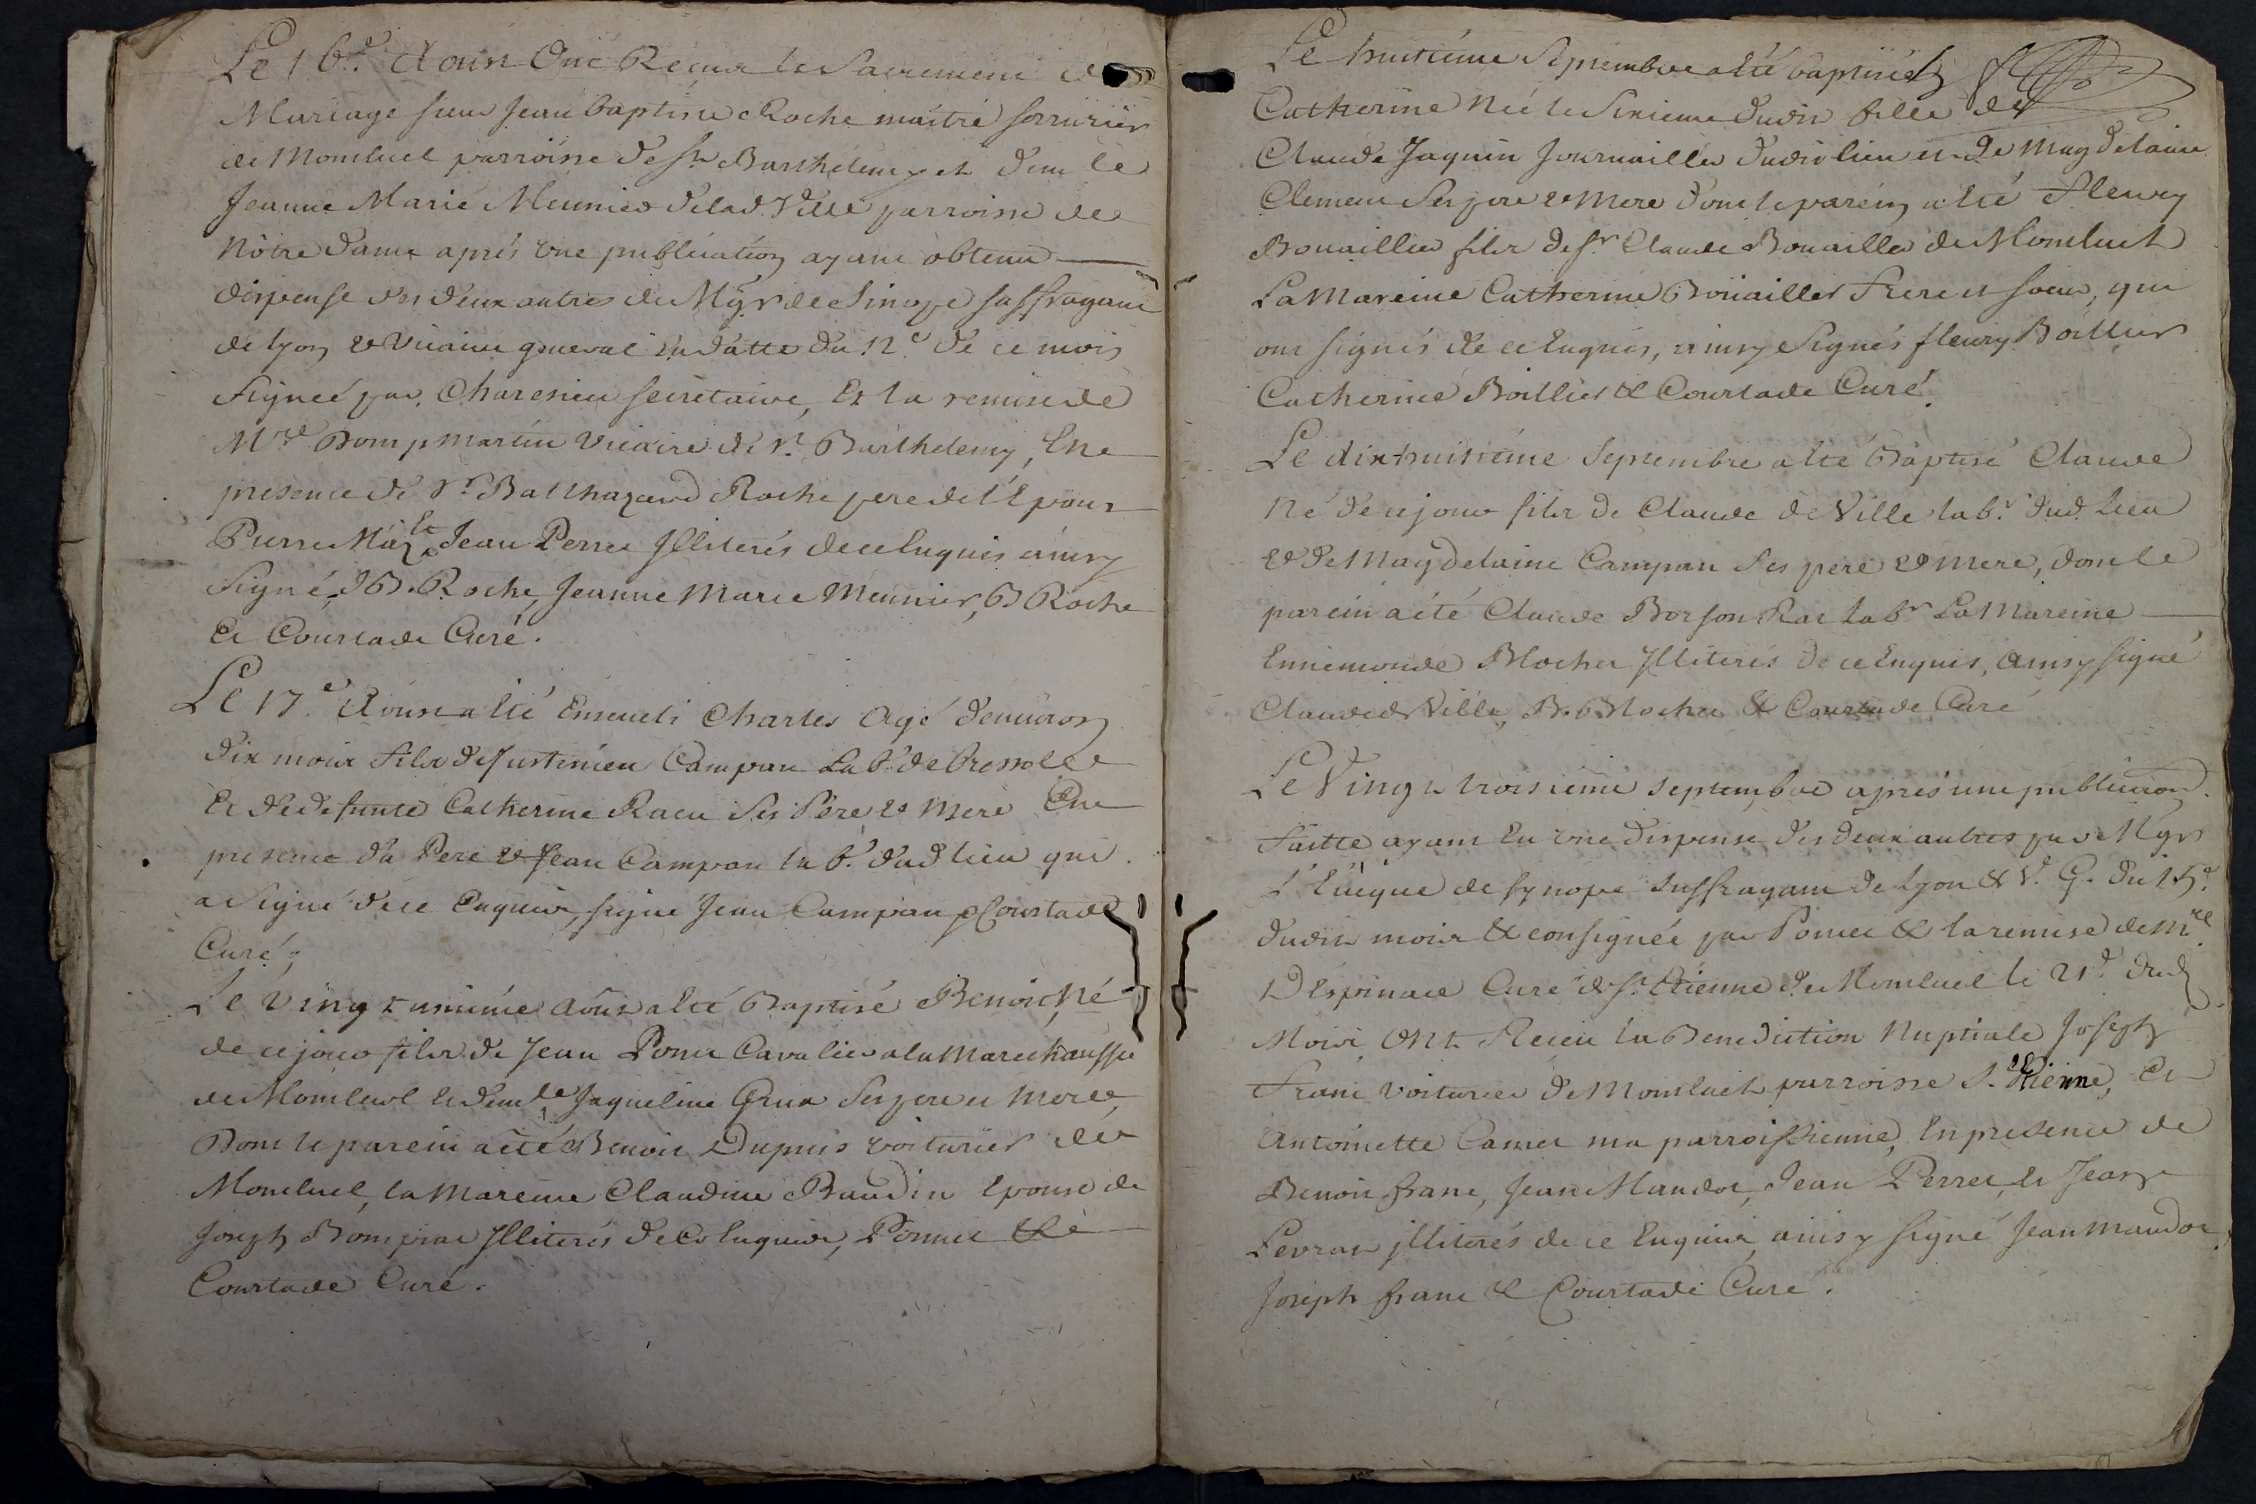 Le 16.e Aoust Ont Reçeu le Sacrement de
Mariage sieur Jean baptiste Roche maitre serrurier
de Montluel parroisse de St Barthelemy et dem.lle
Jeanne Marie Meunier de lad. Ville parroisse de
Nôtre Dame aprés une publication ayant obtenu
dispense des deux autres de Mgr de Sinope suffragant
de Lyon & Vicaire general en datte du 12.e de ce mois
Signée par Charesieu secretaire, Et la remise de
Mre Dompmartin Vicaire de St Barthelemy, En
presence de Sr Balthazard Roche pere de l'Epoux
Pierre Maz et Jean Perret Illiterés de ce Enquis ainsy
Signé, JB. Roche, Jeanne Marie Meunier, B Roche
Et Courtade Curé.
Le 17.e Aoust a Eté Enseveli Charles Agé d'environ
dix mois fils de justinien Campan Lab.r de Bressolle
Et de defunte Catherine Racu Ses Pére & Mere En
presence du Pere & Jean Campan lab.r dud lieu qui
a Signé de ce Enquis, signe Jean Campan & Courtade
Curé;
Le Vingt unieme Aoust a Eté Baptisé Benoit Né
de ce jour fils de Jean Ponet Cavalier a la Marechaussee
de Montluel Et dem.lle Jaqueline Grua Ses pere et Mere
Dont le parein a été Benoit Dupuis voiturier de
Montluel, la Mareine Claudine Baudin Epouse de
Joseph Bompiat Illiterés de Ce Enquis, Ponnet &
Courtade Curé.
Le huitiéme Septembre a Eté baptisée
Catherine Née le Sixieme dudit fille de
Claude Jaquin Journaillier dudit lieu et de Magdelaine
Clement Ses pere & Mere dont le parein a été Fleury
Bouaillier fils de Sr Claude Bouaillier de Montluel
La Mareine Catherine Boüaillier Frere et soeur, qui
ont signés de ce Enquis, ainsy Signés fleury Boillier
Catherine Boillier & Courtade Curé.
Le dixhuitiéme Septembre a Eté Baptisé Claude
Né de ce jour fils de Claude de Ville lab.r dud. lieu
& de Magdelaine Campan Ses pere & mere, dont le
parein a été Claude Borson Rat lab.r La Mareine
Ennemonde Blochet Illiterés de ce Enquis, ainsy signé
Claude de Ville, B. Blochet & Courtade Curé
Le Vingt troisiéme Septembre aprés une publication
Faitte ayant Eu une dispense des deux autres par Mgr
L'Evéque de Synope Suffragant de Lyon & V. G. du 15.e
dudit mois & consignée par Ponet & la remise de Mre
DEspinace Curé de St Etienne de Montluel le 21.e dud
Mois, ont Receu la Benediction Nuptiale Joseph
Franc Voiturier de Montluel parroisse St Etienne, Et
Antoinette Camet ma parroissienne, En presence de
Benoit franc, Jean Mandot, Jean Perret, Et Jean
Levrat illiterés de ce Enquis, ainsy signé Jean Mandot,
Joseph franc & Courtade Curé.